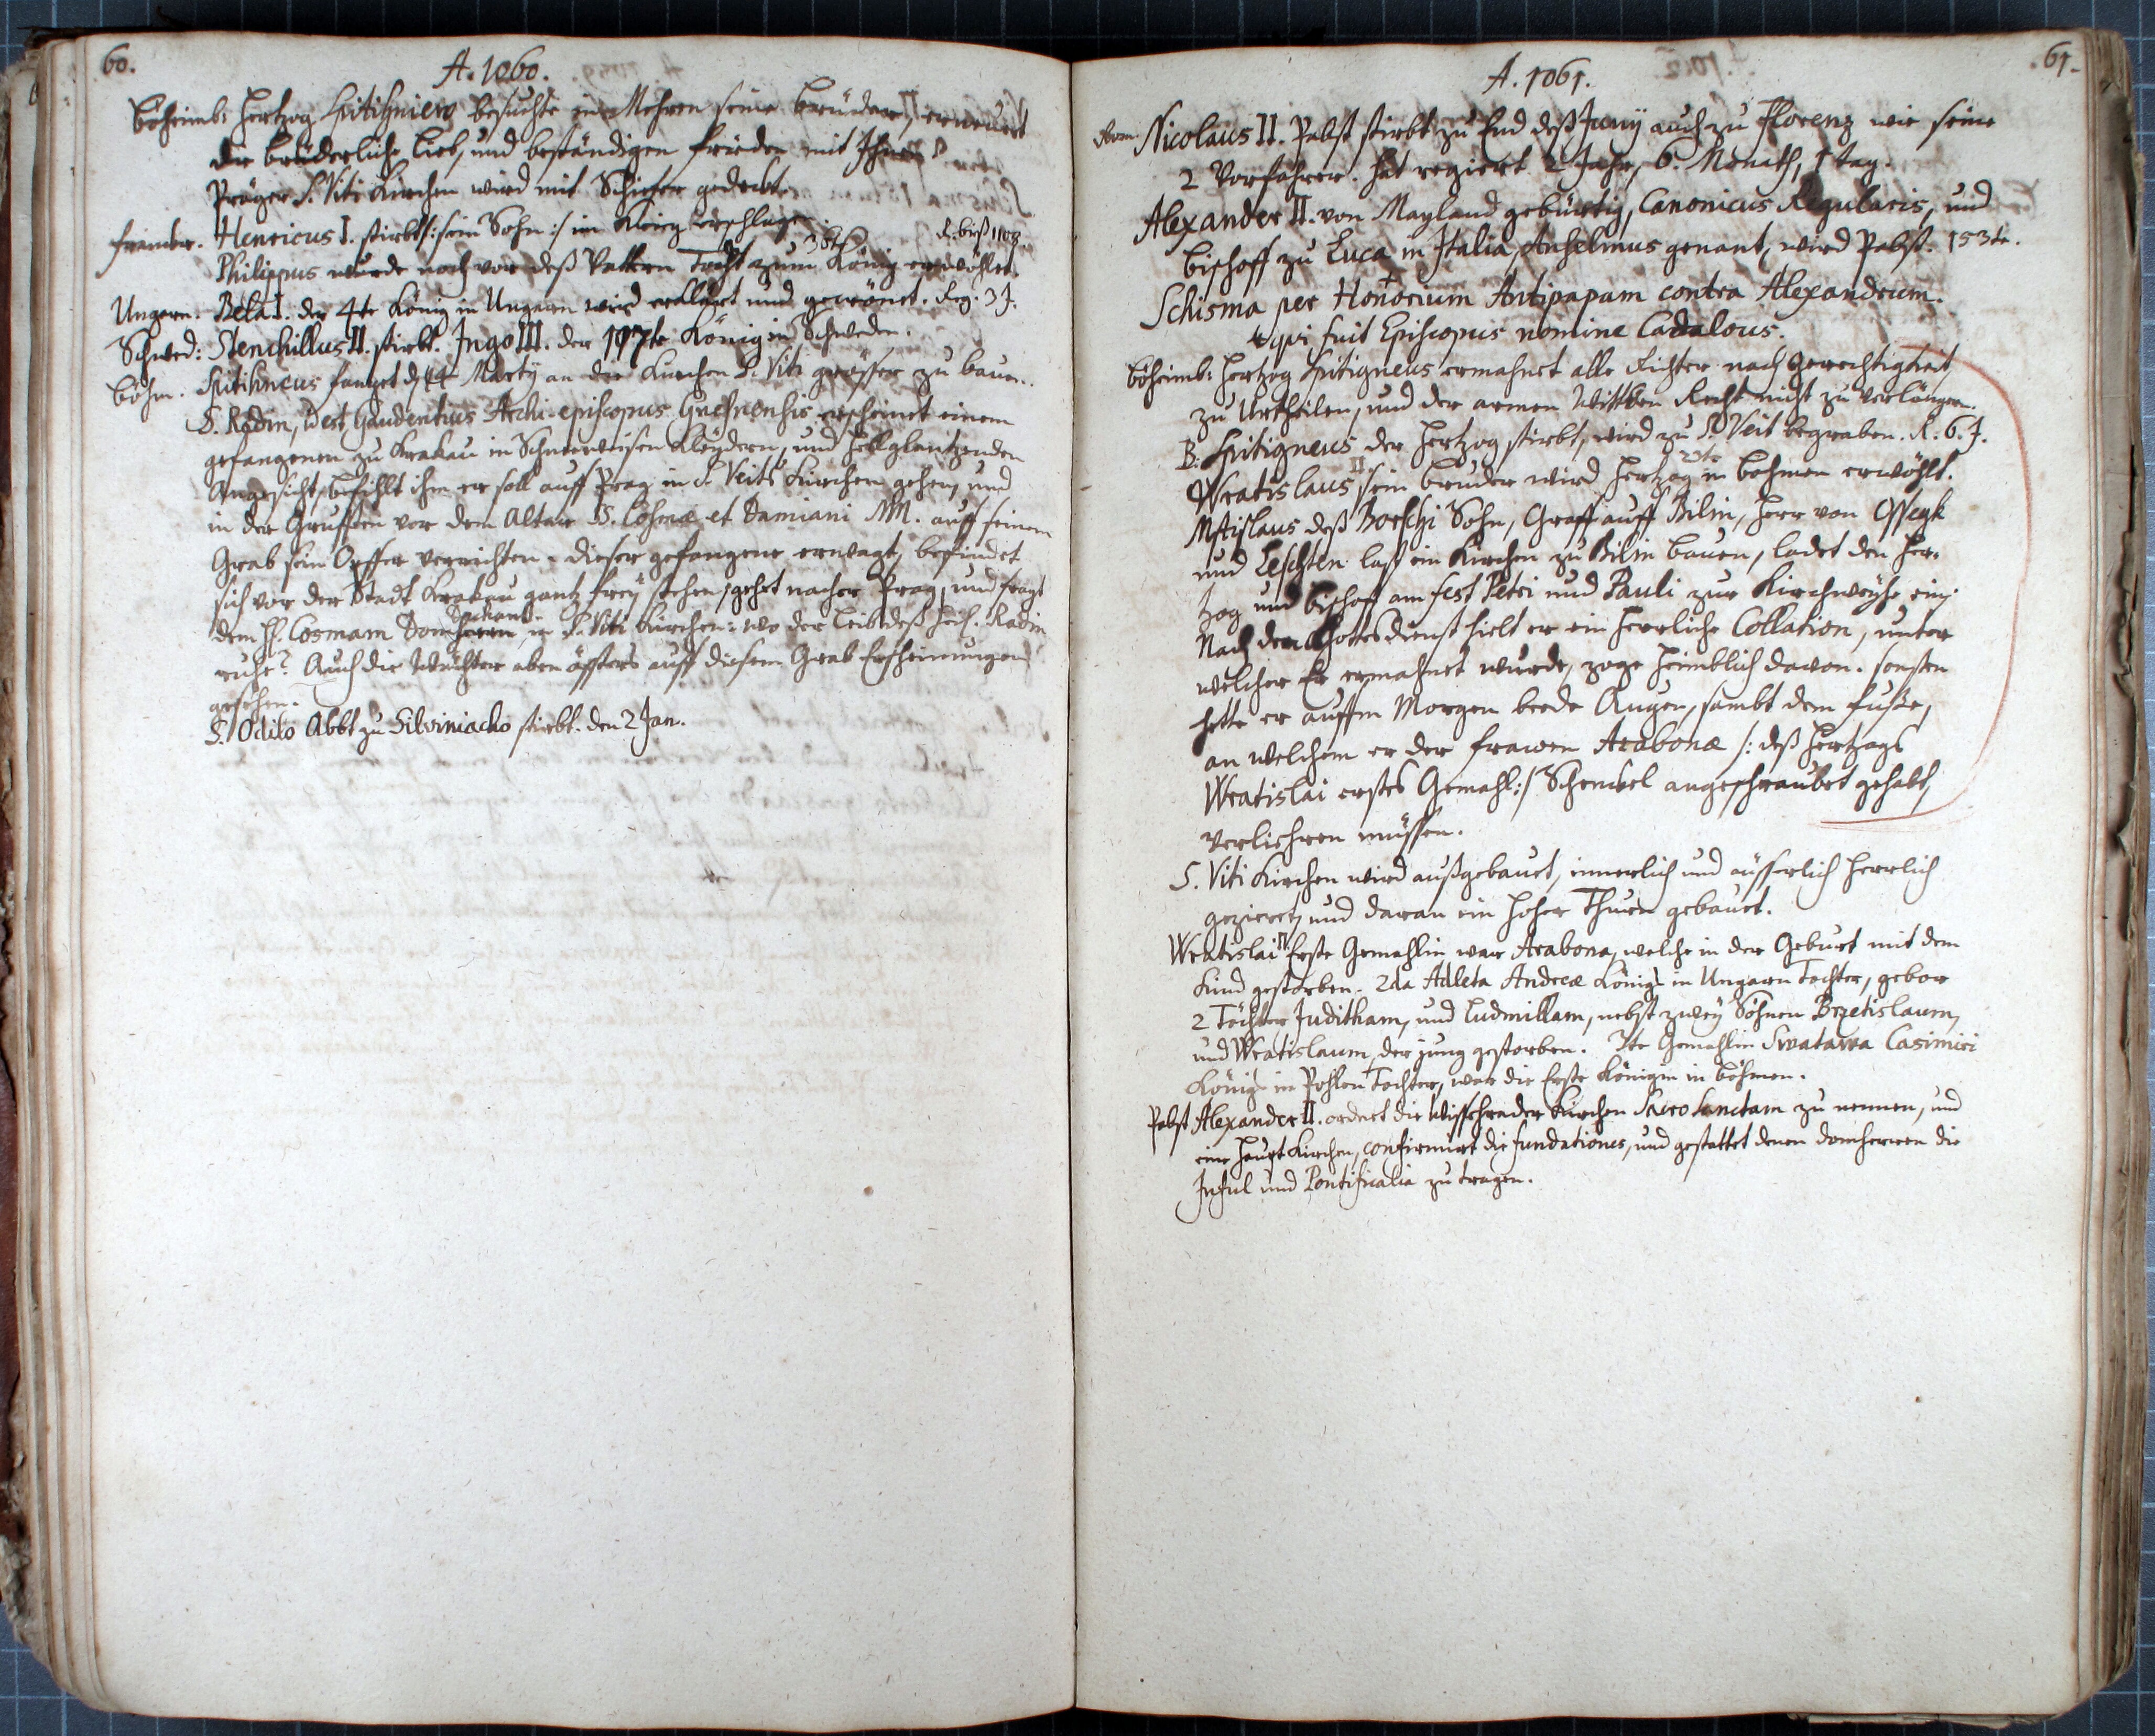 60.
A. 1060.
Böheimb: Hertzog Spitihniew besuchte in Mehren seine brüder, erneuert
die brüderliche Lieb, und beständigen frieden mit Ihnen.
Prager S. Viti Kirchen wird mit Schiefer gedeckt.
franckr. Henricus I. stirbt /: sein Sohn :/ im Krieg erschlagen.
R. biß 1108.
Philippus wurde noch vor deß Vattern Todt zum 38t König erwöhlet.
Ungarn. Bela I. der 4te König in Ungarn wird erklärt und gecrönet. Reg. 3 J.
Schwed: Stenchillus II. stirbt. Ingo III. der 107te König in Schweden.
Böhm. Spitihneus fanget d. 14 Martÿ an die Kirchen S. Viti grösser zu bauen.
S. Radim, id est, Gaudentius Archi-episcopus Gnesnensis erscheinet einem
gefangenen zu Krakau in Schneeweisen Kleÿdern, und hellglantzenden
Angesicht, befihlt ihm er soll auff Prag in S. Veits Kirchen gehen, und
in der Grufften vor dem Altar SS. Cosmæ et Damiani MM. auff seinem
Grab sein Opffer verrichten. dieser gefangene erwagt, befindet
sich vor der Stadt Krakau gantz freÿ stehen, gehet nacher Prag, und fragt
Dechant
den H. Cosmam Domherrn in S. Viti Kirchen: wo der Leib deß heil. Radim
ruhe? Auch die Wächter aben öffters auff diesem Grab Erscheinungen
gesehen.
S. Odilo Abbt zu Silviniacho stirbt. den 2 Jan.
61.
A. 1061.
Rom. Nicolaus II. Pabst stirbt zu End deß Junÿ auch zu Florenz wie seine
2 Vorfahrer. hat regiert 2 Jahr, 6. Monath, 1 Tag.
Alexander II. von Mayland gebürtig, Canonicus Regularis, und
Bischoff zu Luca in Italia, Anselmus genant, wird Pabst. 153te.
+
Schisma per Honorium Antipapam contra Alexandrum.
+ qvi fuit Episcopus nomine Cadalous.
Böheimb: Hertzog Spitigneus ermahnet alle Richter nach Gerechtigkeit
zu Urtheilen, und der armen Wittben Recht nicht zu verlängern.
B. Spitigneus der Hertzog stirbt, wird zu S. Veit begraben. R. 6. J.
Wratislaus II sein bruder wird Hertzog 23te in Böhmen erwöhlt.
Mstislaus deß Borschi Sohn, Graff auff Bilin, Herr von Ossegk
und Leschten last ein Kirchen zu Bilin bauen, ladet den Her-
zog und Bischoff am fest Petri und Pauli zur Kirchweÿhe ein.
Nach dem Gottesdienst hielt er ein herrliche Collation, unter
welcher Er ermahnet wurde, zoge heimblich davon. sonsten
hette er auffm Morgen beede Augen, sambt dem fusse,
an welchem er der frawen Arabonæ /: deß Hertzogs
Wratislai erstes Gemahl :/ Schenckel angeschraubet gehabt,
verliehren müssen.
S. Viti Kirchen wird außgebauet, innerlich und äüsserlich herrlich
gezieret, und daran ein hoher Thurn gebauet.
Wratislai II Erste Gemahlin war Arabona, welche in der Geburt mit dem
Kind gestorben. 2da Adleta Andreæ Königs in Ungarn Tochter, gebor
2 Töchter Juditham, und Ludmillam, nebst zweÿ Söhnen Brzetislaum,
und Wratislaum, der jung gestorben. 3te Gemahlin Swatawa Casimiri
Königs in Pohlen Tochter, war die Erste Königin in Böhmen.
Pabst Alexander II. ordnet die Wisschrader Kirchen Sacro Sanctam zu nennen, und
eine Haupt Kirchen, confirmirt die fundationes, und gestattet denen domherren die
Inful und Pontificalia zu tragen.